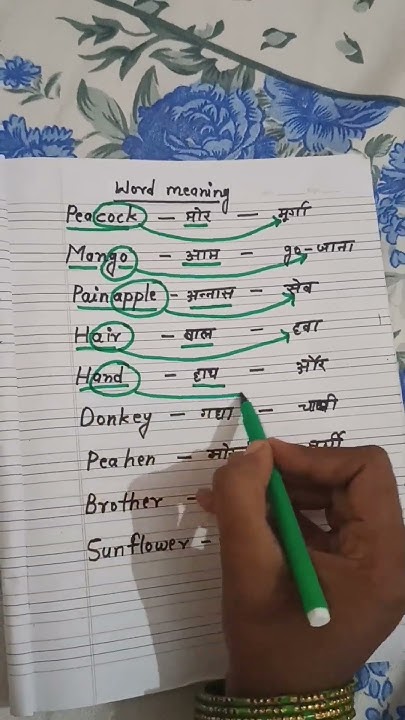 Word meaning
Peacock - मोर - मूर्गा
Mango - आम - go-जाना
Painapple - अन्नास - सेब
Hair - बाल - हवा
Hand - हाथ - और
Donkey - गधा - चाबी
Peahen -
Brother -
Sunflower -